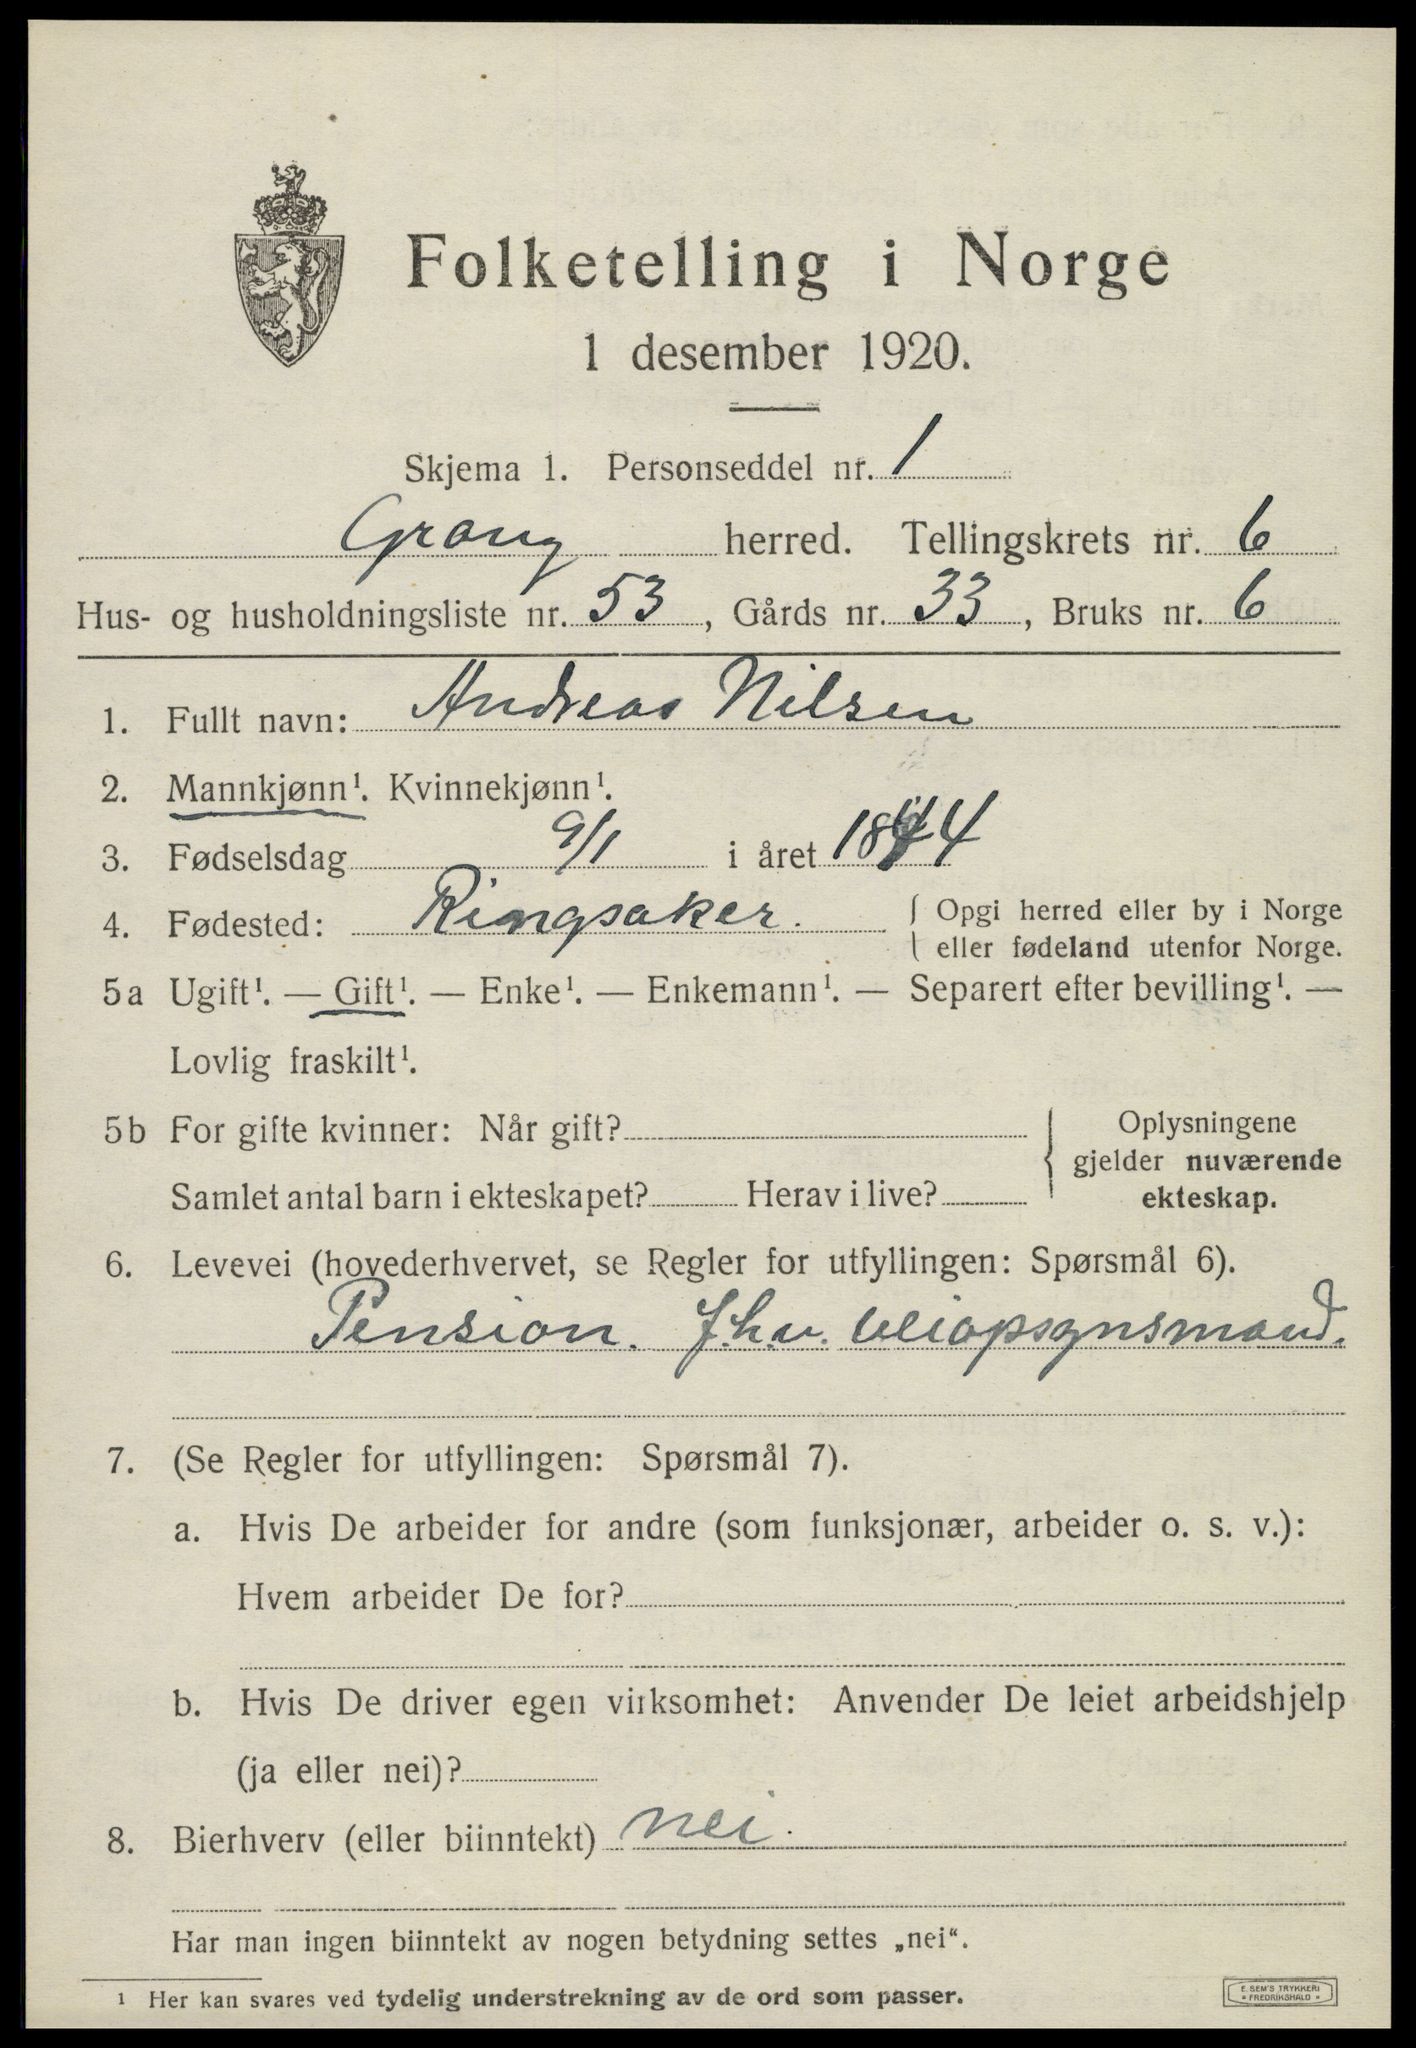 Folketelling i Norge
1 desember 1920.
Skjema 1. Personseddel nr. 1
Grong herred. Tellingskrets nr. 6
Hus- og husholdningsliste nr. 53, Gårds nr. 33, Bruks nr. 6
1. Fullt navn: Andreas Nilsen
2. Mannkjønn¹. Kvinnekjønn¹.
3. Fødselsdag 9/1 i året 1844
4. Fødested: Ringsaker. { Opgi herred eller by i Norge
eller fødeland utenfor Norge.
5a Ugift¹. — Gift¹. — Enke¹. — Enkemann¹. — Separert efter bevilling¹. —
Lovlig fraskilt¹.
5b For gifte kvinner: Når gift?
Samlet antal barn i ekteskapet? Herav i live?
Oplysningene
gjelder nuværende
ekteskap.
6. Levevei (hovederhvervet, se Regler for utfyllingen: Spørsmål 6).
Pension. f.h.v. veiopsynsmand.
7. (Se Regler for utfyllingen: Spørsmål 7).
a. Hvis De arbeider for andre (som funksjonær, arbeider o. s. v.):
Hvem arbeider De for?
b. Hvis De driver egen virksomhet: Anvender De leiet arbeidshjelp
(ja eller nei)?
8. Bierhverv (eller biinntekt) nei.
Har man ingen biinntekt av nogen betydning settes „nei“.
¹ Her kan svares ved tydelig understrekning av de ord som passer.
E. SEM'S TRYKKERI
FREDRIKSHALD